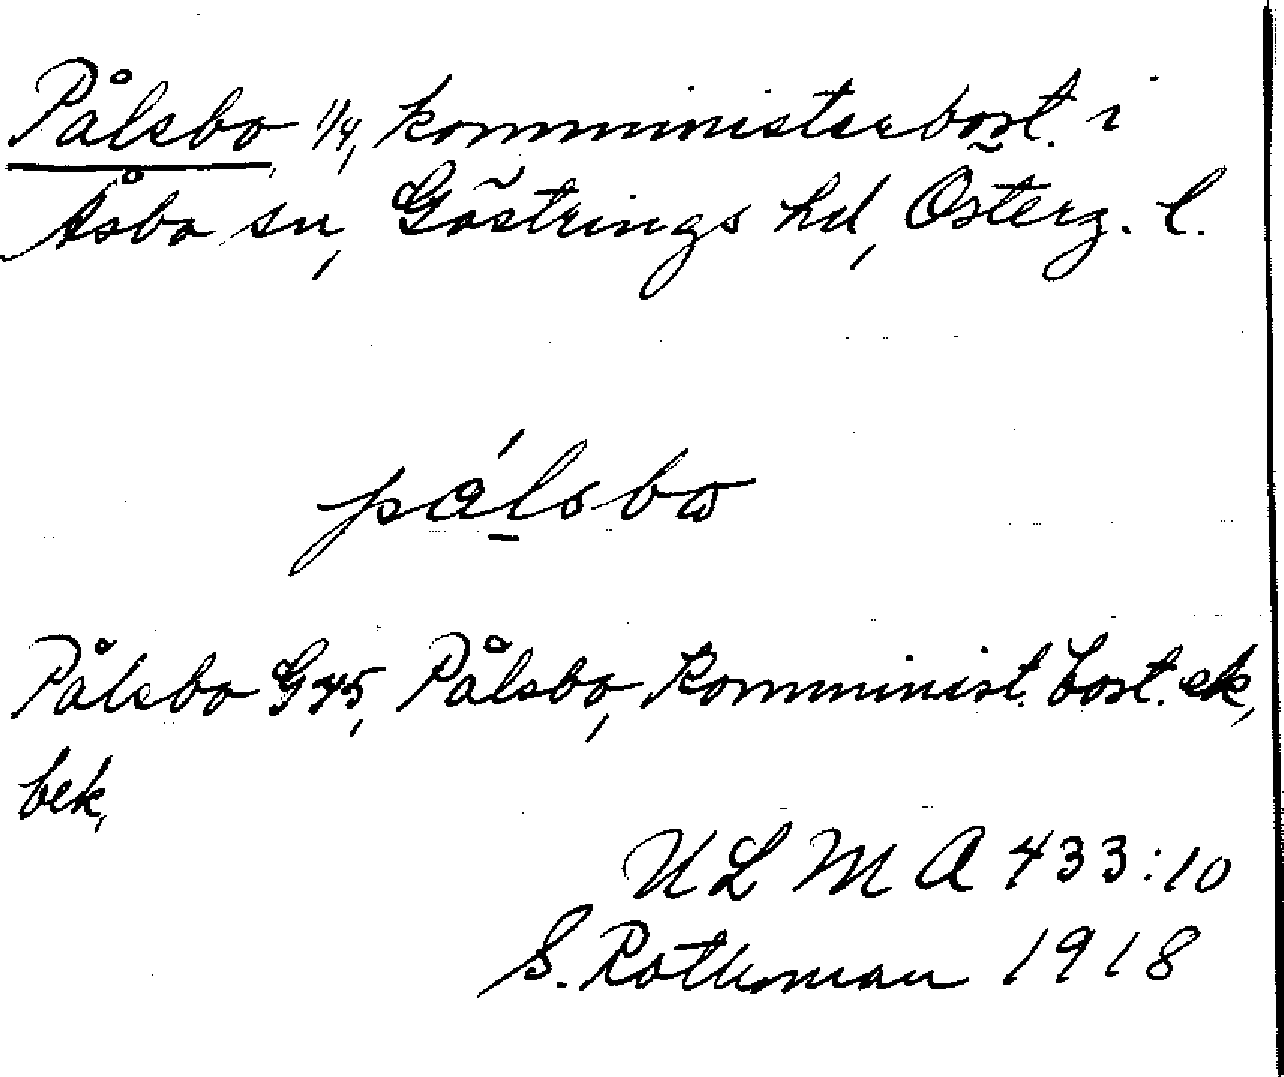 Pålsbo 1/4, komministerbost. i
Åsbo sn, Göstrings hd, Österg. l.
pálsbω
Pålsbo G45, Pålsbo, Komminist. bost. ek,
bek,
ULMA 433:10
S. Rothman 1918